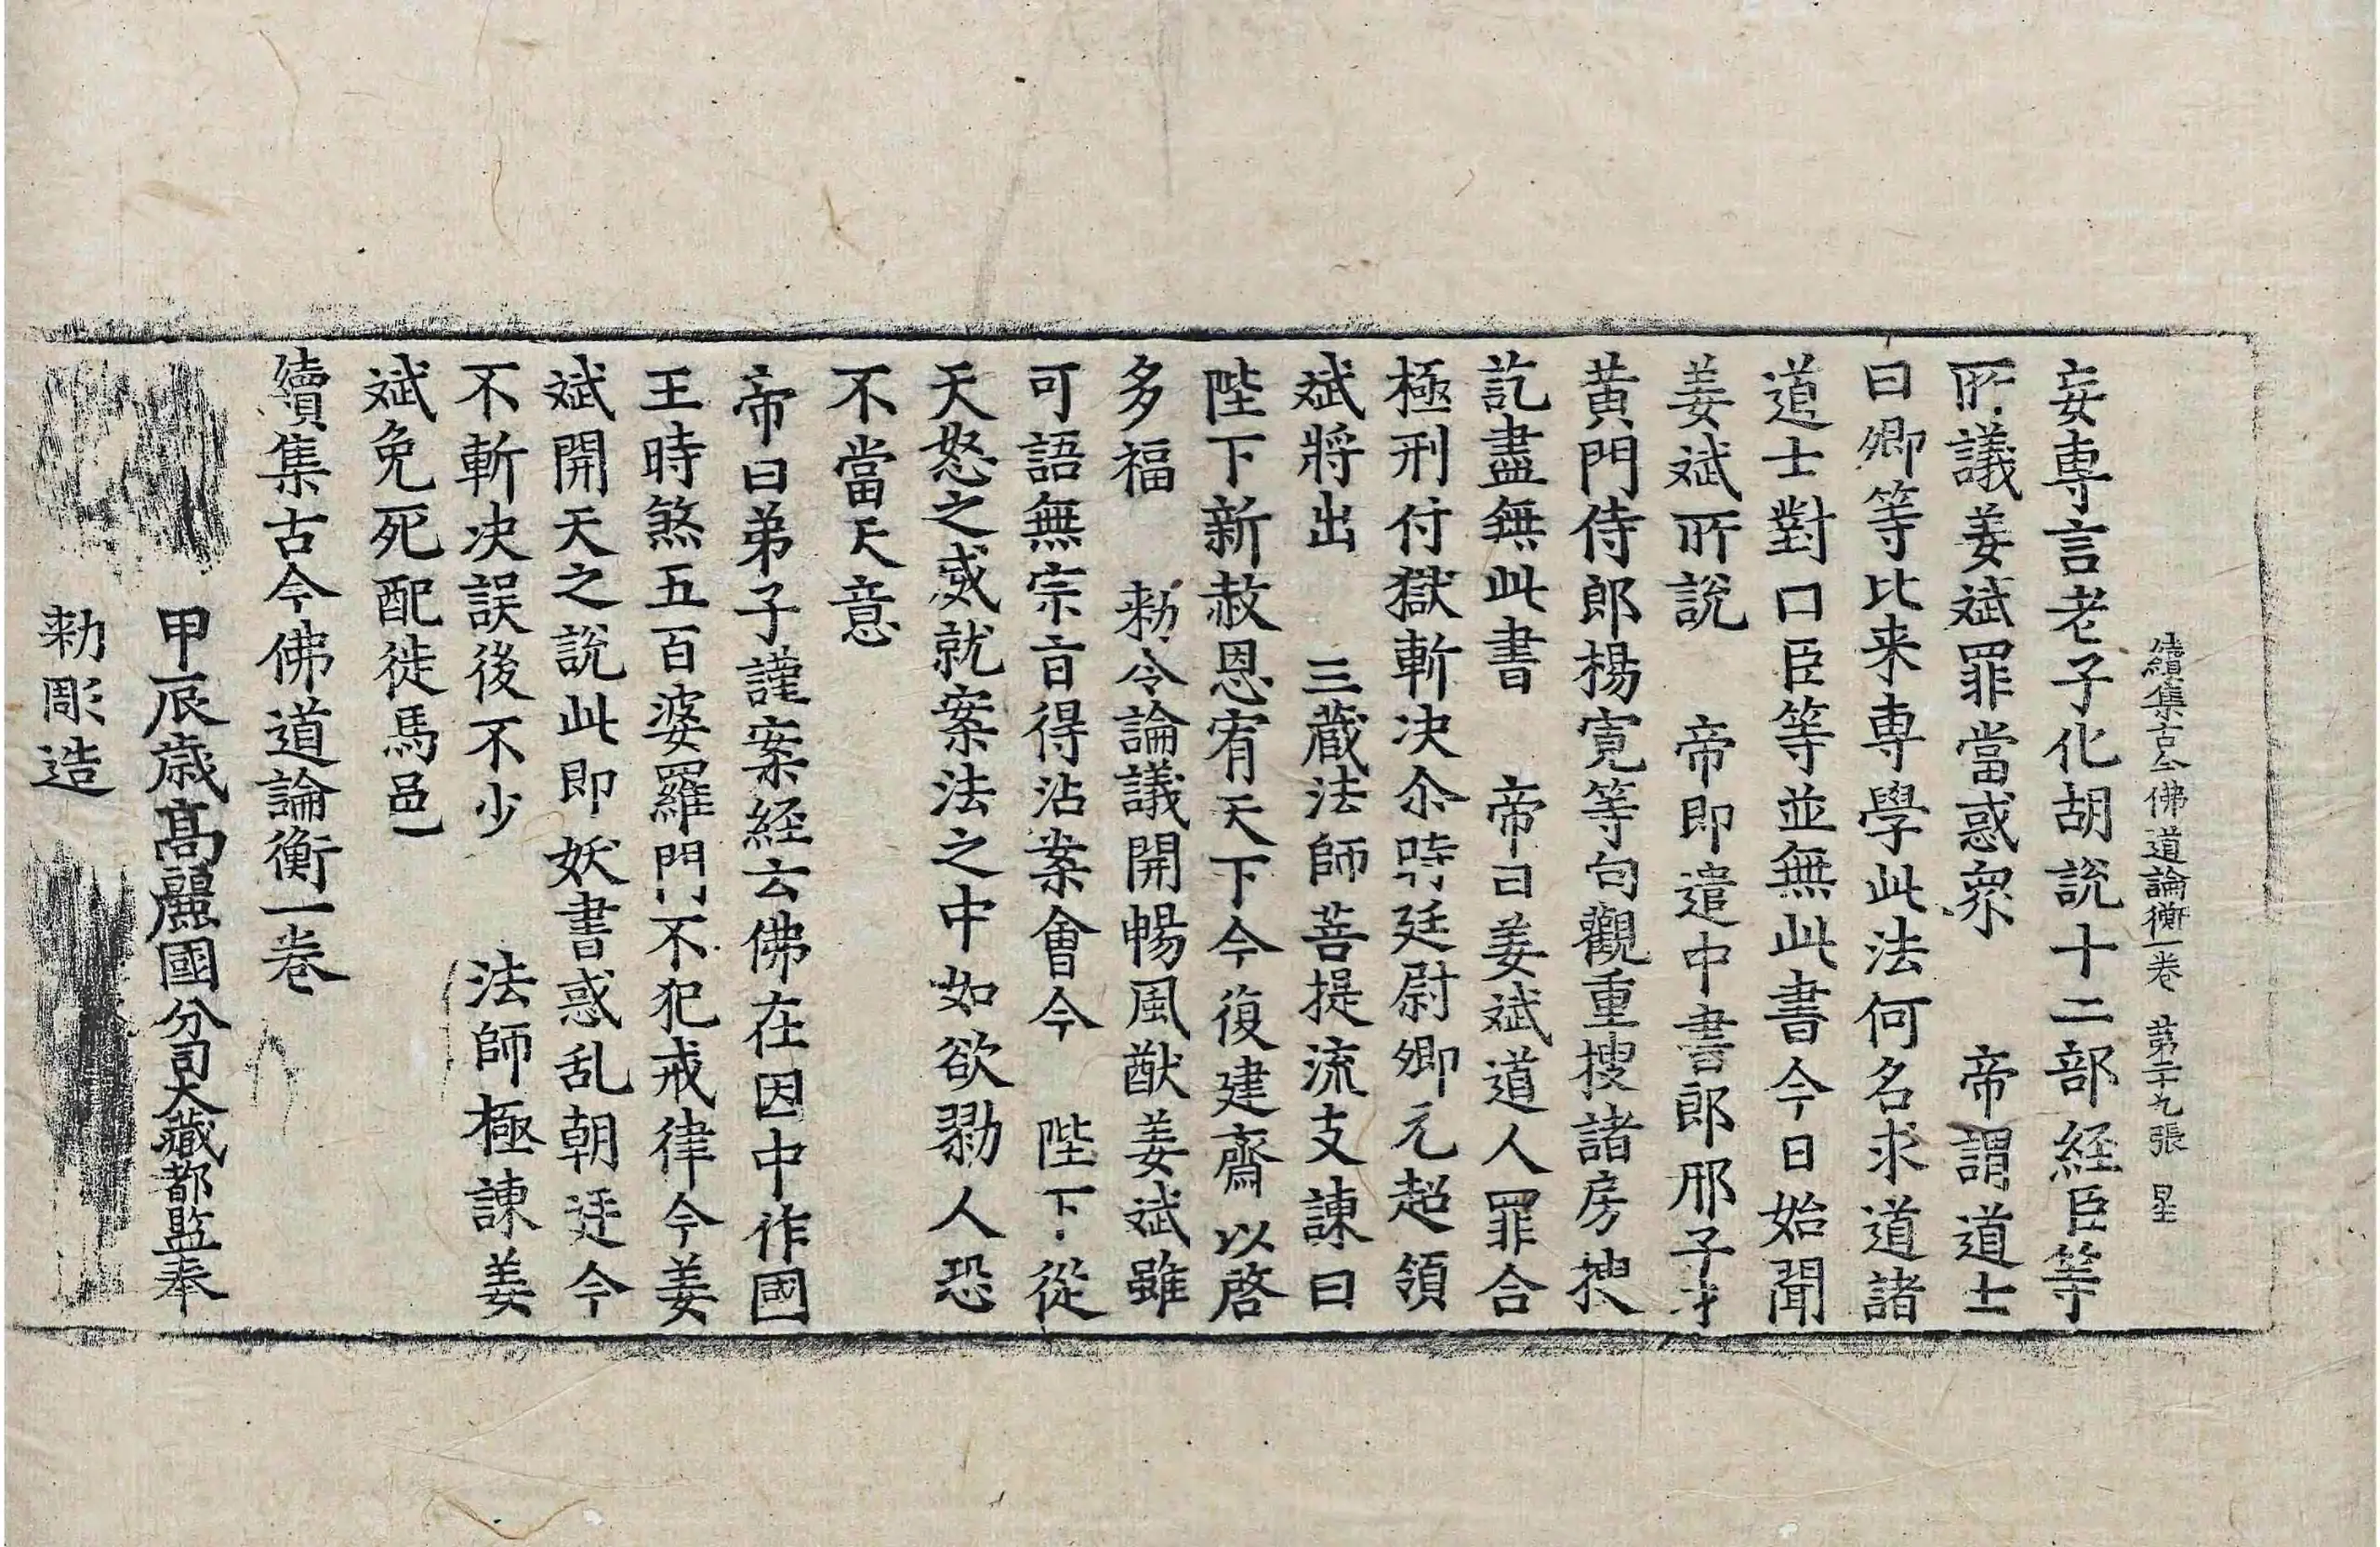 續集古今佛道論衡一卷 苐二十九張 星
妄専言老子化胡說十二部経臣等
所議姜斌罪當惑衆 帝謂道士
曰卿等比来専學此法何名求道諸
道士對曰臣等並無此書今日始聞
姜斌所說 帝即遣中書郎邢子才
黄門侍郎楊寛等句觀重捜諸房捜
訖盡無此書 帝曰姜斌道人罪合
極刑付獄斬决尒時廷尉卿元超領
斌將出 三蔵法師菩提流支諌曰
陛下新赦恩宥天下今復建齋以啓
多福 勑令論議開暢風猷姜斌雖
可語無宗旨得沾案會今 陛下從
天怒之威就案法之中如欲勠人恐
不當天意
帝曰弟子謹案経云佛在因中作國
王時煞五百婆羅門不犯戒律今姜
斌開天之說此即妖書惑乱朝廷今
不斬决誤後不少 法師極諌姜
斌免死配徙馬邑
續集古今佛道論衡一卷
甲辰歳髙麗國分司大藏都監奉
勑彫造